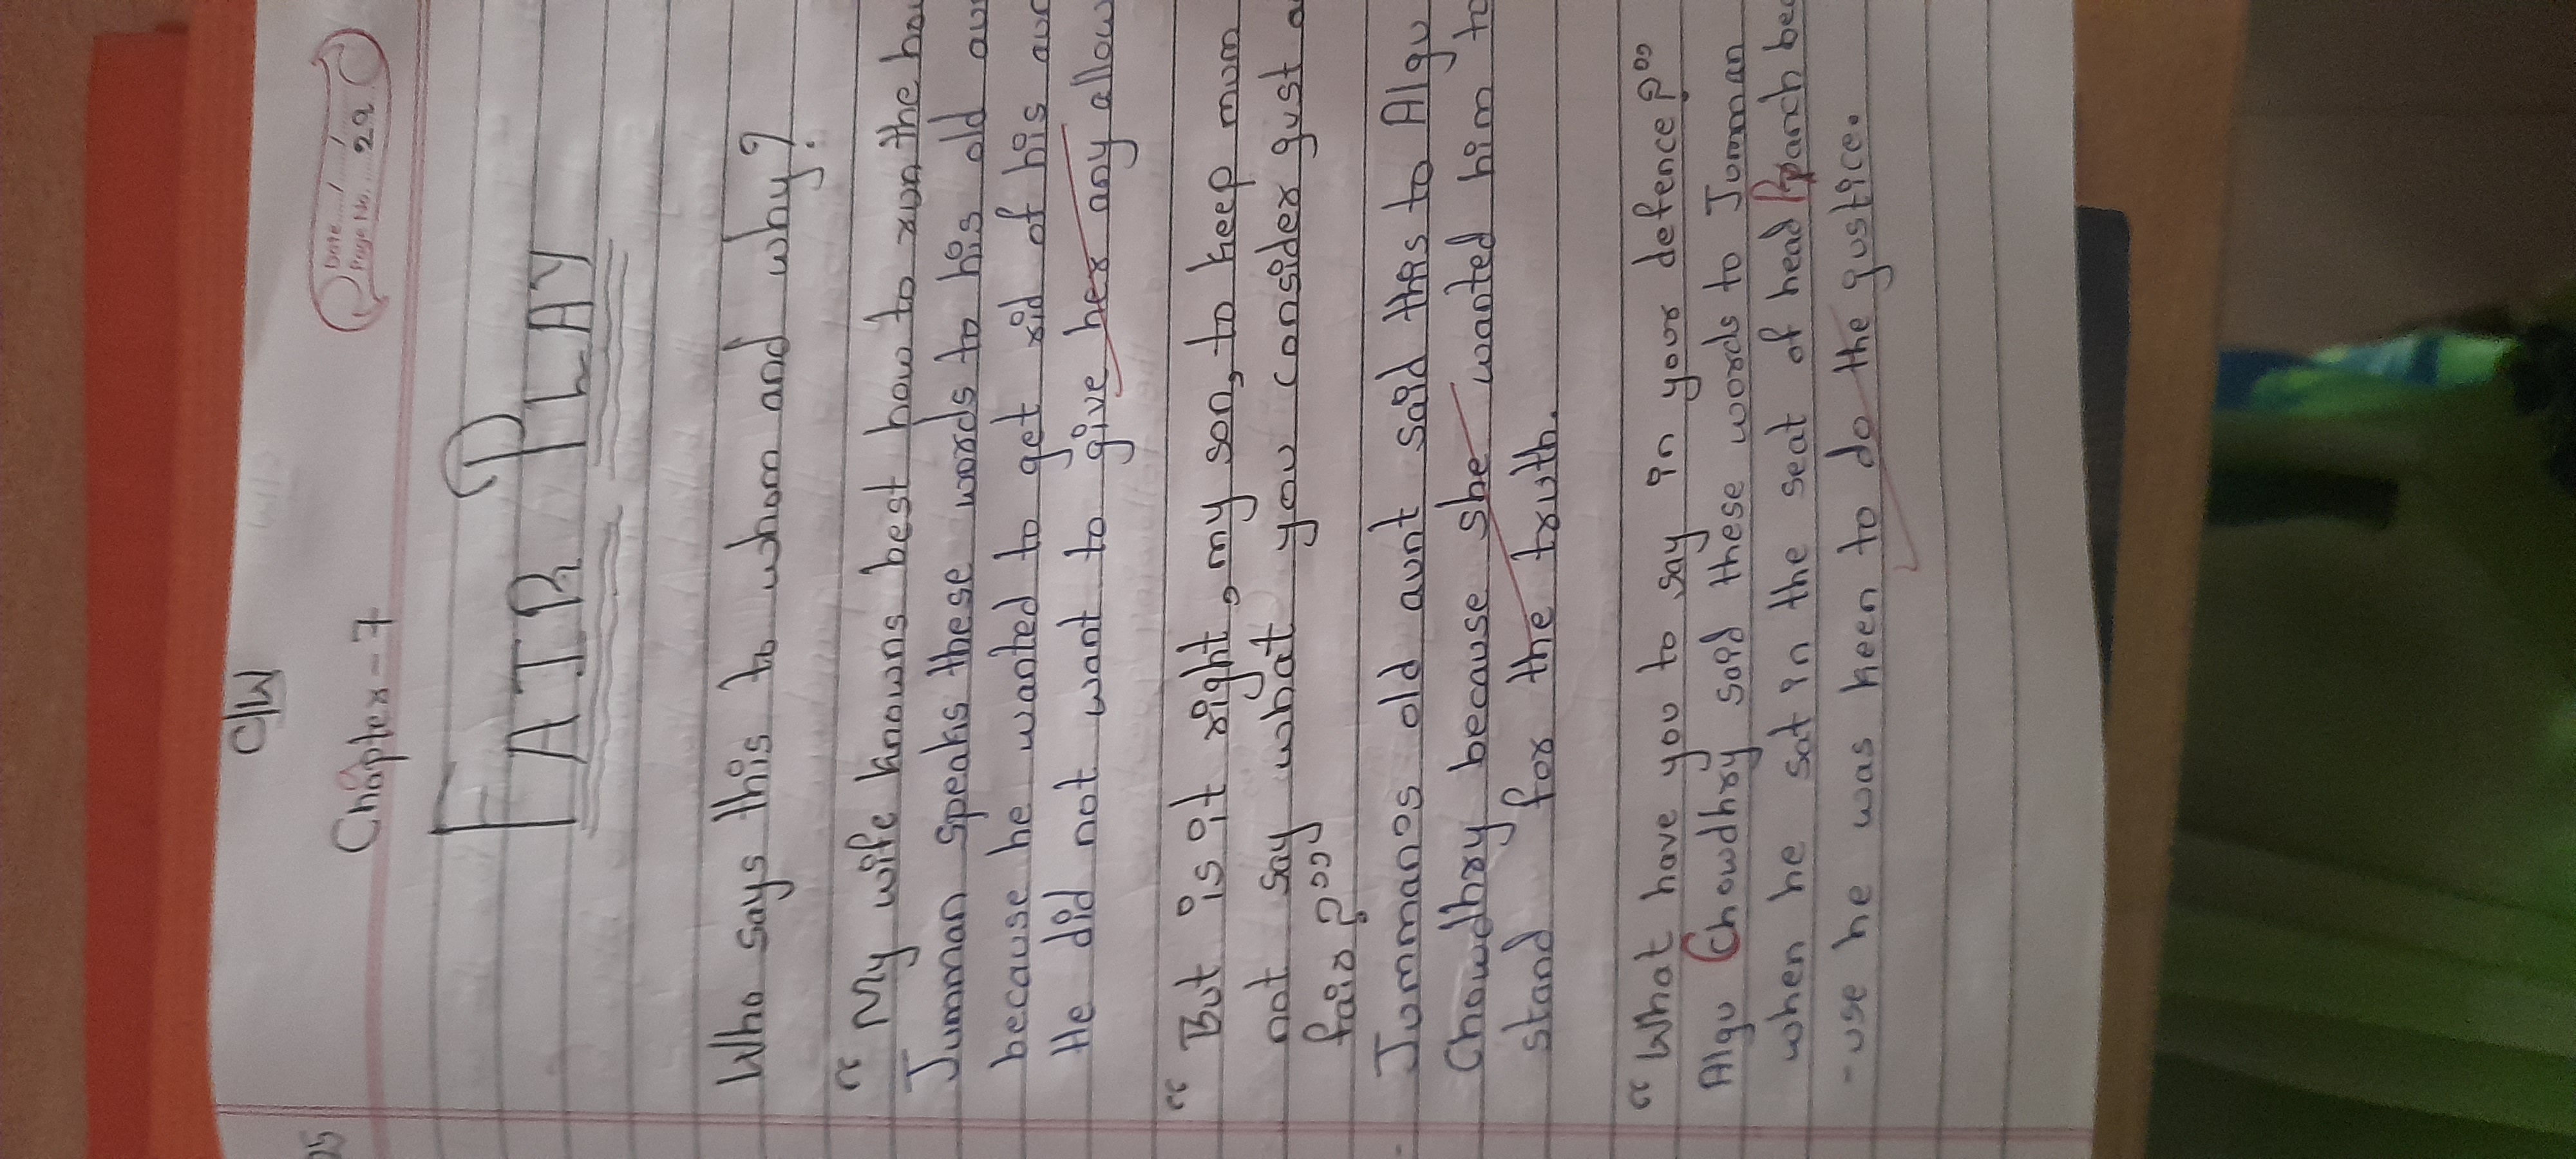 C/W
Date...../...../.....
Page No. 29
Chapter-7
FAIR PLAY
Who says this to whom and why?
" My wife knowns best how to run the hou
Jumman speaks these words to his old aun
because he wanted to get rid of his aun
He did not want to give her any allow
" But is it right, my son, to keep mum
not say what you consider gust a
fair?"
Jumman's old aunt said this to Algu
Chowdhry because she wanted him to
stand for the truth.
" What have you to say in your defence?"
Algu Chowdhry said these words to Jumman
when he sat in the seat of head Panch bec
-use he was keen to do the gustice.